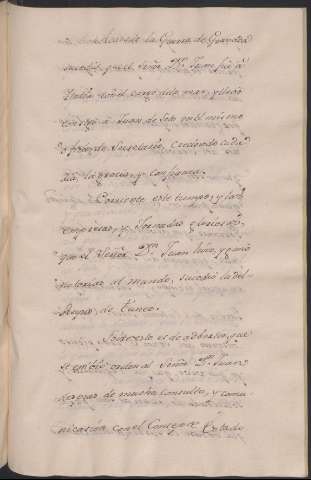 la Guerra de Granada
sucedió, que el Señor Dn. Juan fué à
Italia con el cargo dela mar, y llevó
consigo à Juan de Soto en el mismo
oficio de Secretario, creciendo cada
dia la gracia, y confianza.
Corriente este tiempo, y las
empresas, y Jornadas gloriosas,
que el Señor Dn. Juan hizo, y son
notorias al mundo, sucedió la del
Reyno de Tunez.
Sobre esto es de advertir, que
se embió orden al Señor Dn. Juan
despues de mucha Consulta, y comu-
nicacion con el Consejo de Estado